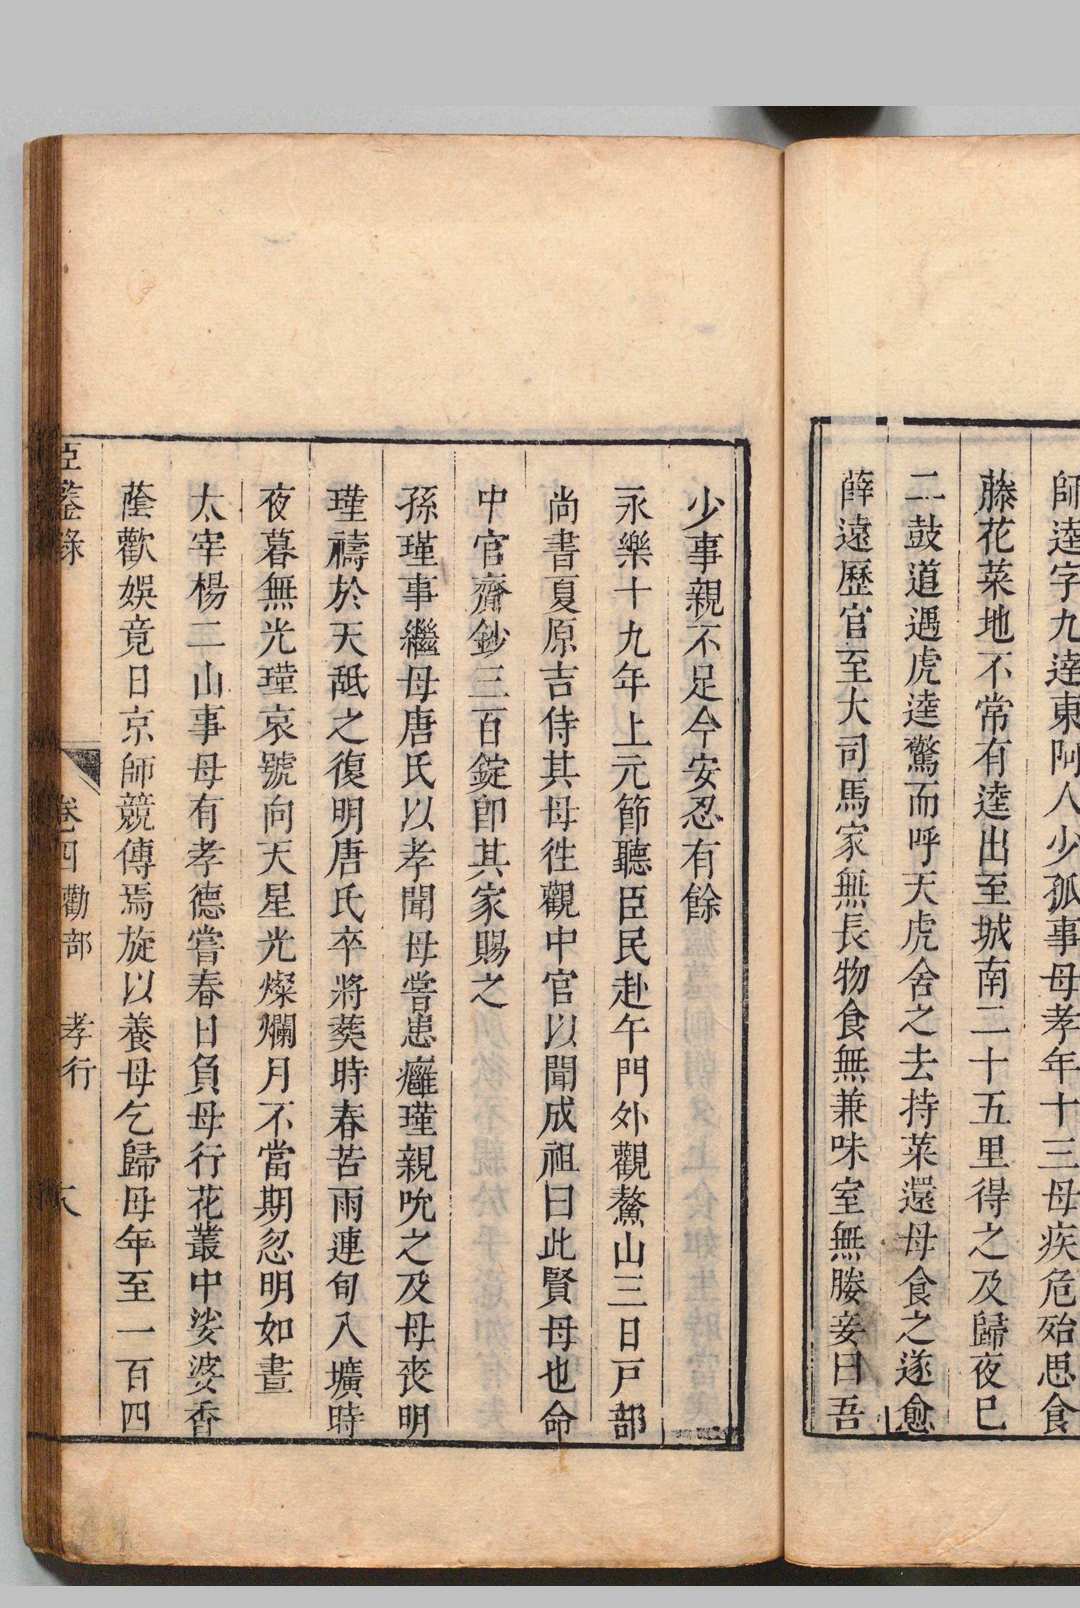 師逵字九逵東阿人少孤事母孝年十三母疾危殆思食
藤花菜地不常有逵出至城南二十五里得之及歸夜巳
二鼓道遇虎逵驚而呼天虎舍之去持菜還母食之遂愈
薛遠歷官至大司馬家無長物食無兼味室無媵妾曰吾
少事親不足今安忍有餘
永樂十九年上元節聽臣民赴午門外觀鰲山三日戸部
尚書夏原吉侍其母徃觀中官以聞成祖曰此賢母也命
中官齎鈔三百錠卽其家賜之
孫瑾事繼母唐氏以孝聞母嘗患癰瑾親吮之及母喪明
瑾禱於天舐之復明唐氏卒將葬時春苦雨連旬入壙時
夜暮無光瑾哀號向天星光燦爛月不當期忽明如晝
太宰楊二山事母有孝德嘗春日負母行花叢中娑婆香
蔭歡娛竟日京師競傳焉旋以養母乞歸母年至一百四
臣鑒錄 卷四勸部 孝行